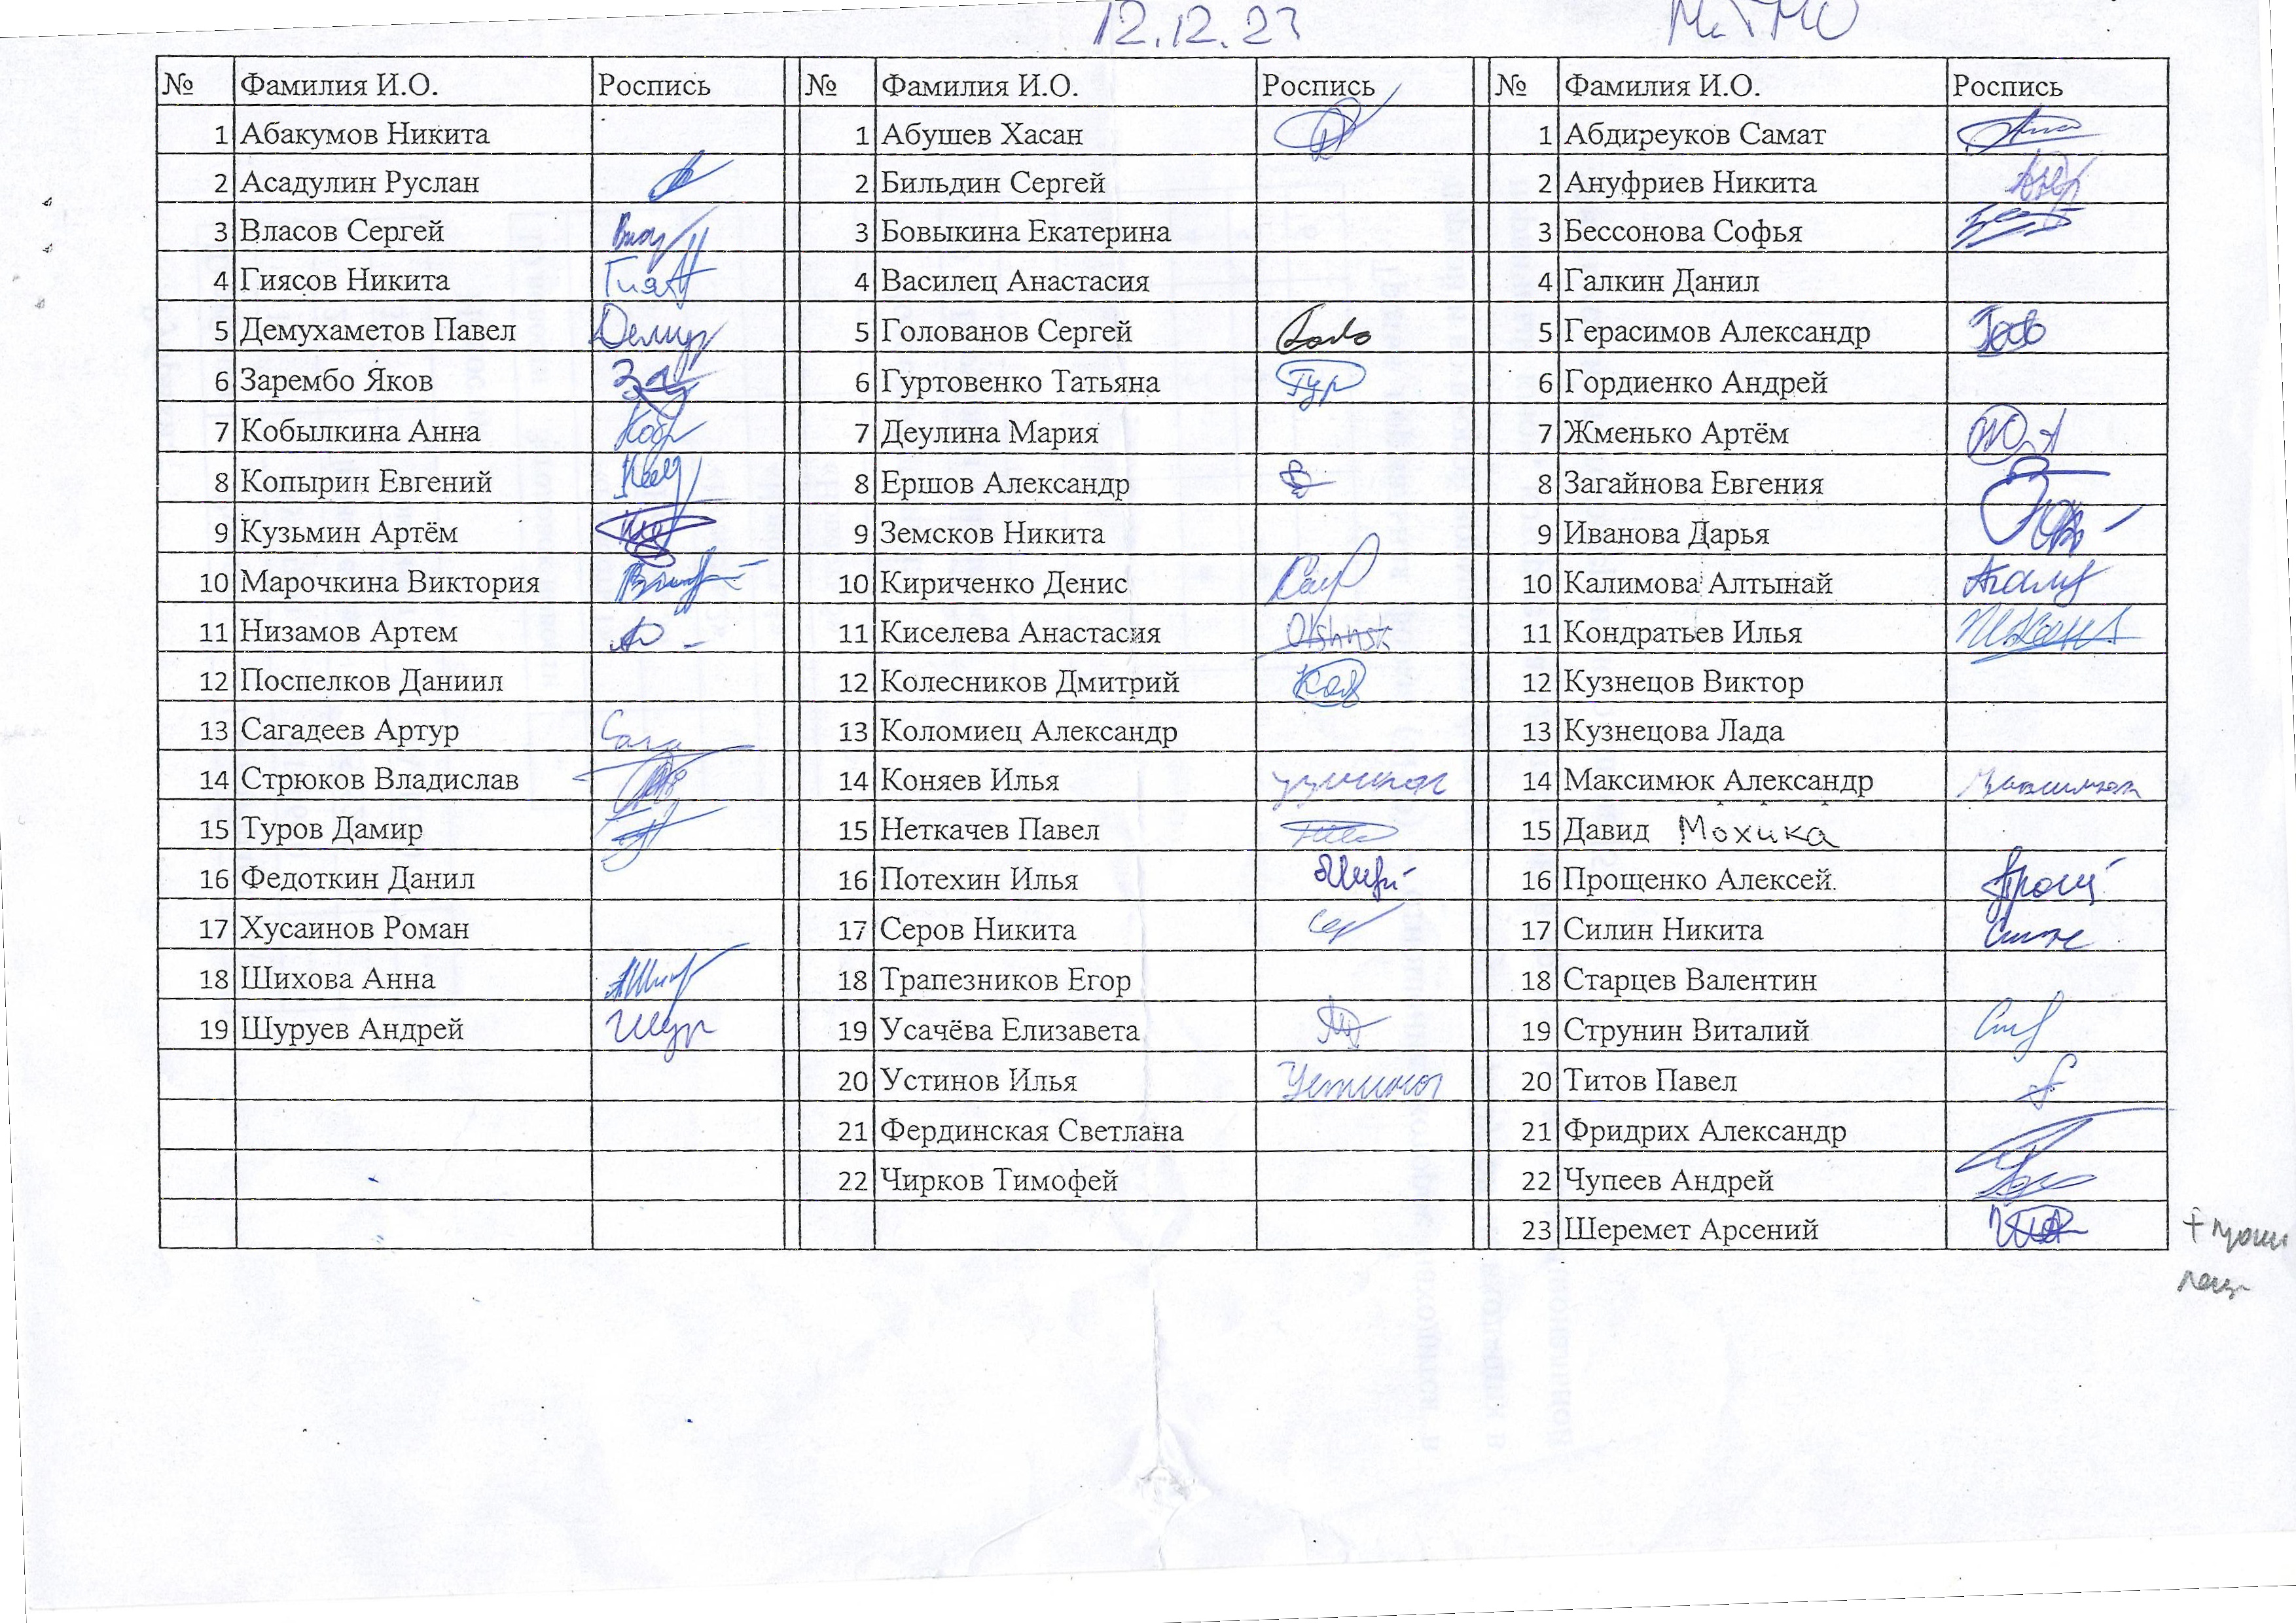 12.12.23 МиТМО
№ Фамилия И.О. Роспись № Фамилия И.О. Роспись № Фамилия И.О. Роспись
1 Абакумов Никита 1 Абушев Хасан 1 Абдиреуков Самат
2 Асадулин Руслан 2 Бильдин Сергей 2 Ануфриев Никита
3 Власов Сергей 3 Бовыкина Екатерина 3 Бессонова Софья
4 Гиясов Никита 4 Василец Анастасия 4 Галкин Данил
5 Демухаметов Павел 5 Голованов Сергей 5 Герасимов Александр
6 Зарембо Яков 6 Гуртовенко Татьяна Гур 6 Гордиенко Андрей
7 Кобылкина Анна 7 Деулина Мария 7 Жменько Артём
8 Копырин Евгений 8 Ершов Александр 8 Загайнова Евгения
9 Кузьмин Артём 9 Земсков Никита 9 Иванова Дарья
10 Марочкина Виктория 10 Кириченко Денис 10 Калимова Алтынай
11 Низамов Артем 11 Киселева Анастасия 11 Кондратьев Илья
12 Поспелков Даниил 12 Колесников Дмитрий 12 Кузнецов Виктор
13 Сагадеев Артур Сага 13 Коломиец Александр 13 Кузнецова Лада
14 Стрюков Владислав 14 Коняев Илья 14 Максимюк Александр Максимюк
15 Туров Дамир 15 Неткачев Павел 15 Давид Мохика
16 Федоткин Данил 16 Потехин Илья 16 Прощенко Алексей. Прощ
17 Хусаинов Роман 17 Серов Никита Сер 17 Силин Никита
18 Шихова Анна 18 Трапезников Егор 18 Старцев Валентин
19 Шуруев Андрей Шур 19 Усачёва Елизавета 19 Струнин Виталий
20 Устинов Илья Устинов 20 Титов Павел
21 Фердинская Светлана 21 Фридрих Александр
22 Чирков Тимофей 22 Чупеев Андрей
23 Шеремет Арсений